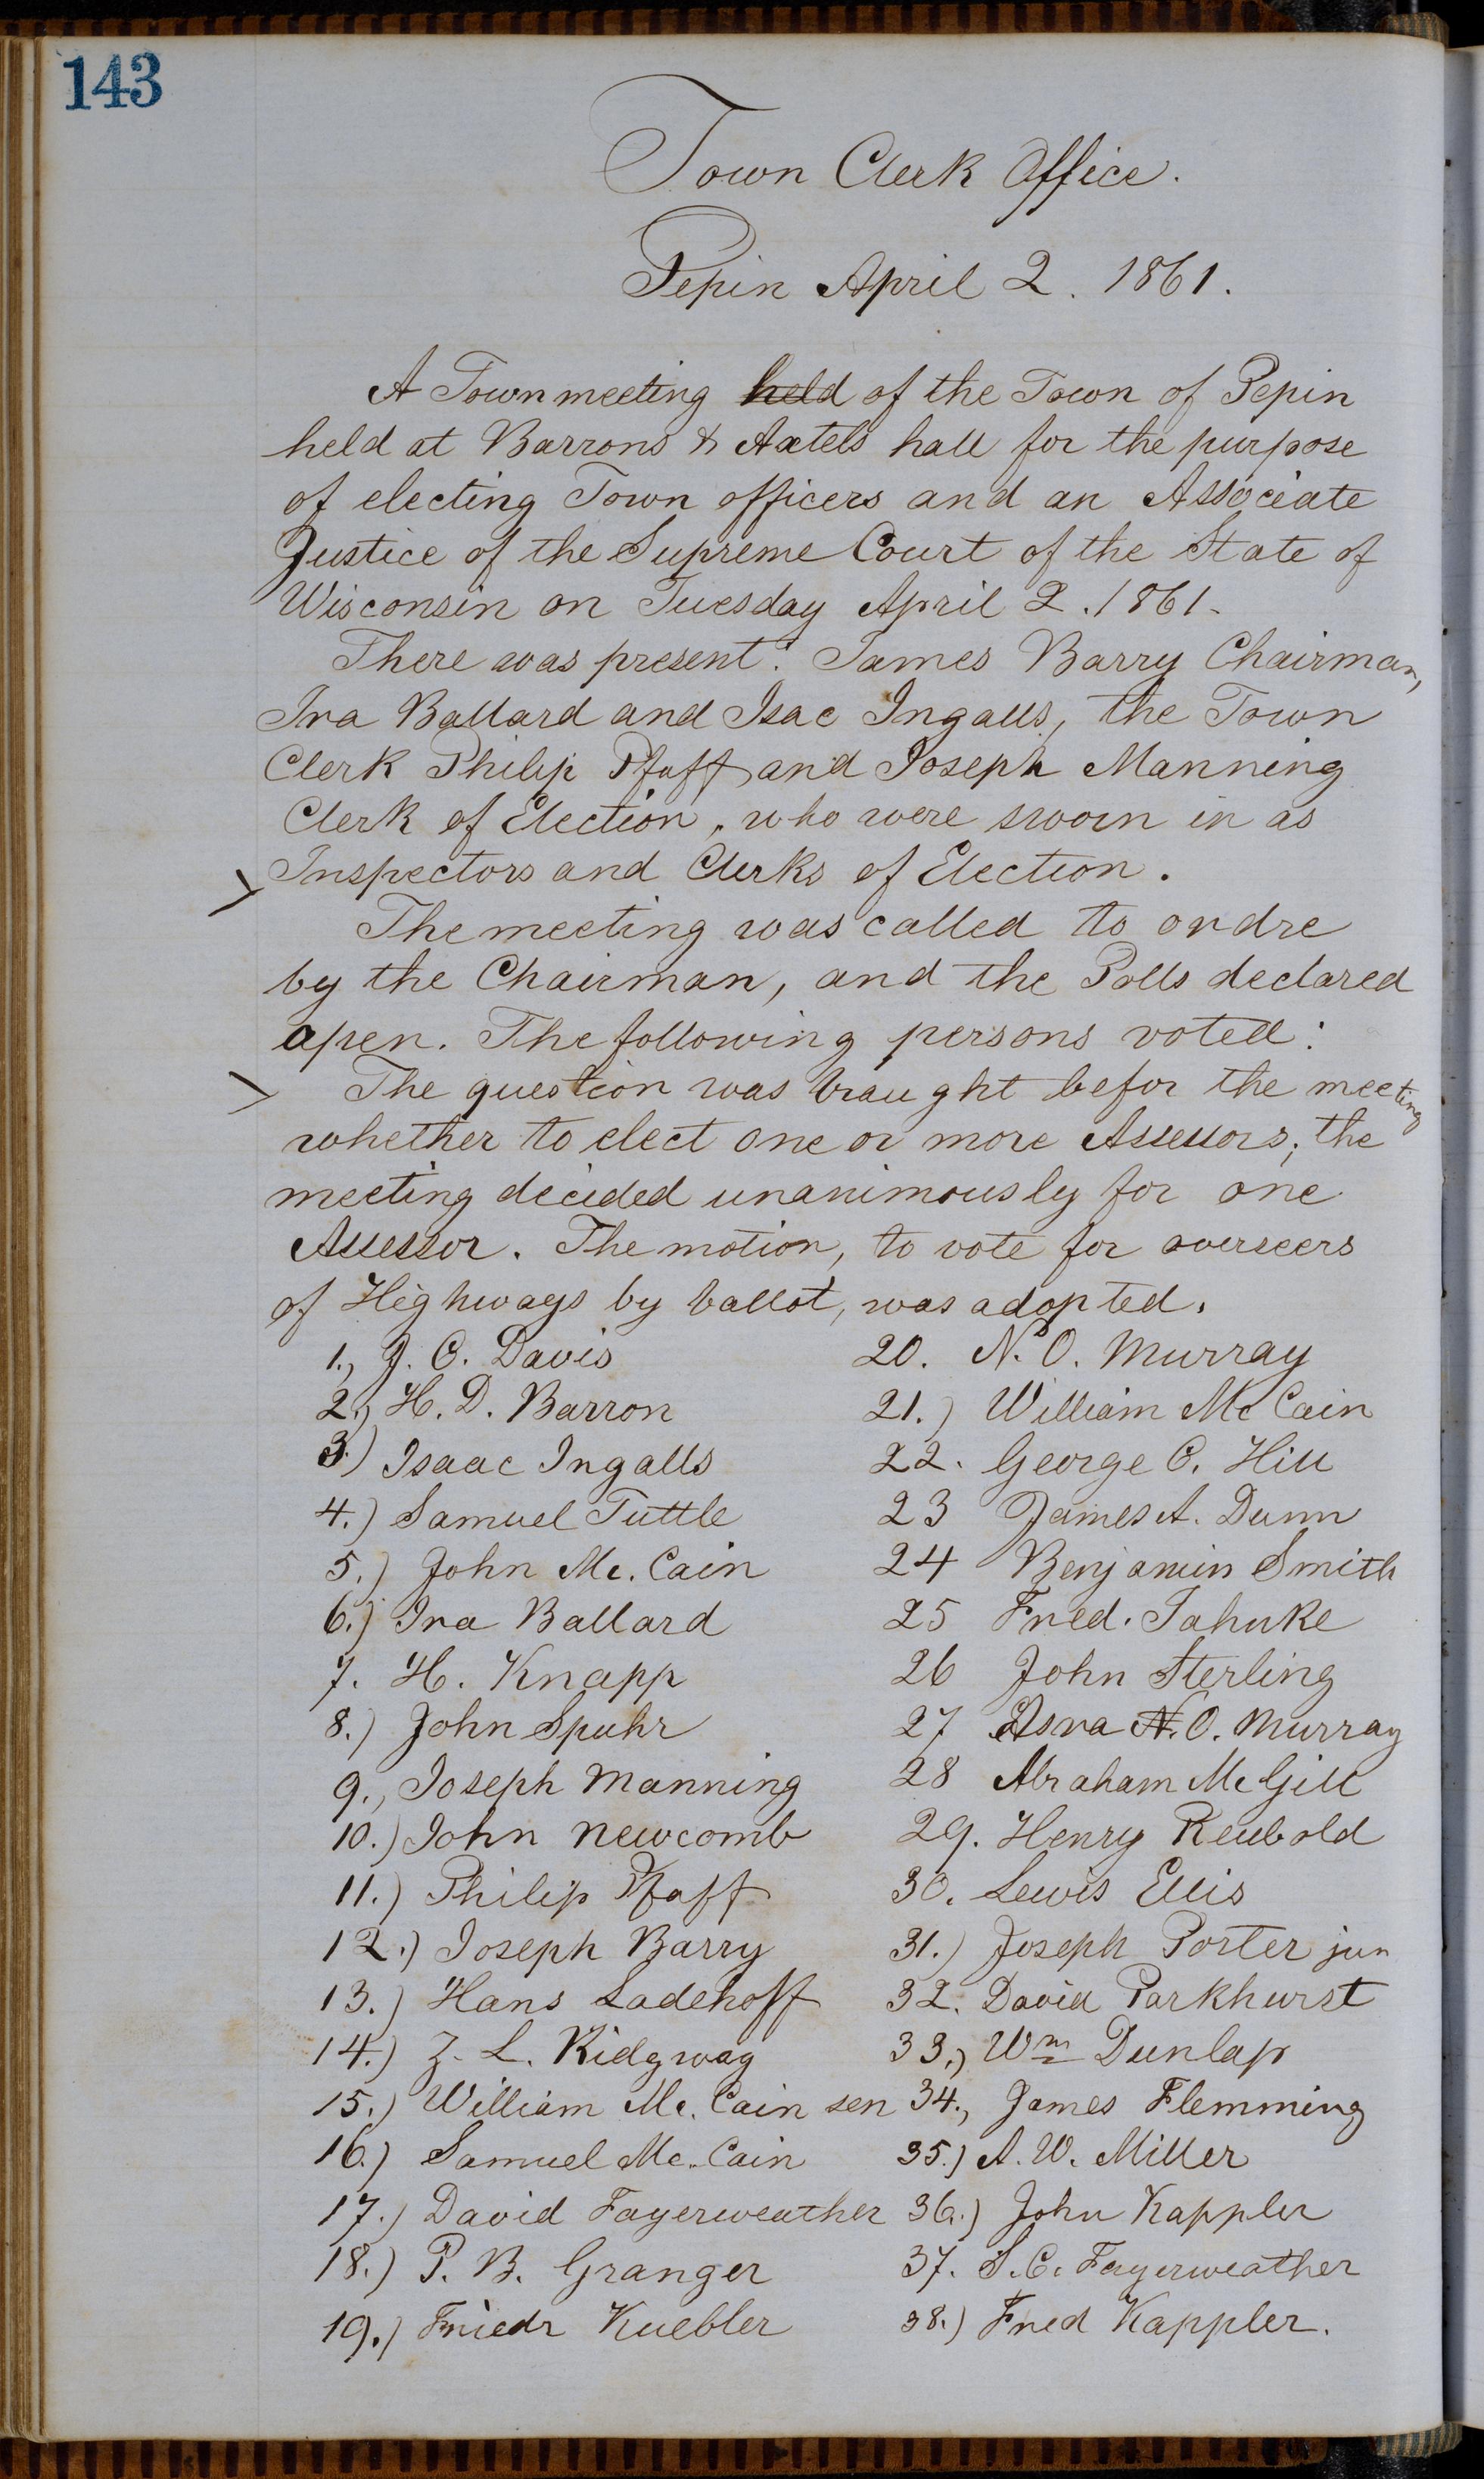 143
Town Clerk Office.
Pepin April 2. 1861.
A Town meeting held of the Town of Pepin
held at Barrons & Axtels hall for the purpose
of electing Town officers and an Associate
Justice of the Supreme Court of the State of
Wisconsin on Tuesday April 2. 1861.
There was present: James Barry Chairman,
Ira Ballard and Isac Ingalls, the Town
Clerk Philip Pfaff and Joseph Manning
Clerk of Election, who were sworn in as
Inspectors and Clerks of Election.
The meeting was called to ordre
by the Chairman, and the Polls declared
open. The following persons voted:
The question was braught befor the meeting
whether to elect one or more Assessors; the
meeting decided unanimously for one
Assessor. The motion, to vote for overseers
of Highways by ballot, was adopted.
1., J. C. Davis
2.) H. D. Barron
3.) Isaac Ingalls
4.) Samuel Tuttle
5.) John Mc. Cain
6.) Ira Ballard
7. H. Knapp
8.) John Spuhr
9., Joseph Manning
10.) John Newcomb
11.) Philip Pfaff
12.) Joseph Barry
13.) Hans Ladehoff
14.) Z. L. Ridgway
15.) William Mc. Cain sen
16.) Samuel Mc. Cain
17.) David Fayerweather
18.) P. B. Granger
19.) Friedr Kuebler
20. N. O. Murray
21.) William Mc Cain
22. George C. Hill
23 James A. Dunn
24 Benjamin Smith
25 Fred. Jahnke
26 John Sterling
27 Asra N. O. Murray
28 Abraham Mc Gill
29. Henry Reubold
30. Lewis Ellis
31.) Joseph Porter jun
32. David Parkhurst
33.) Wm Dunlap
34., James Flemming
35.) A. W. Miller
36.) John Kappler
37. S. C. Fayerweather
38.) Fred Kappler.